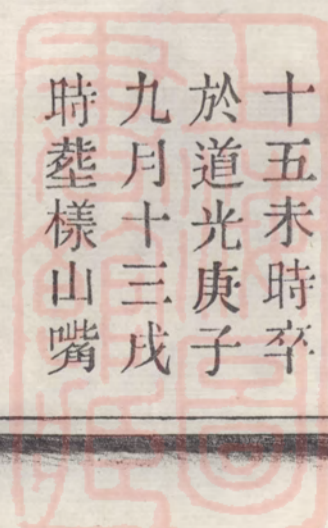 十五未時卒
於道光庚子
九月十三戌
時塟樣山嘴